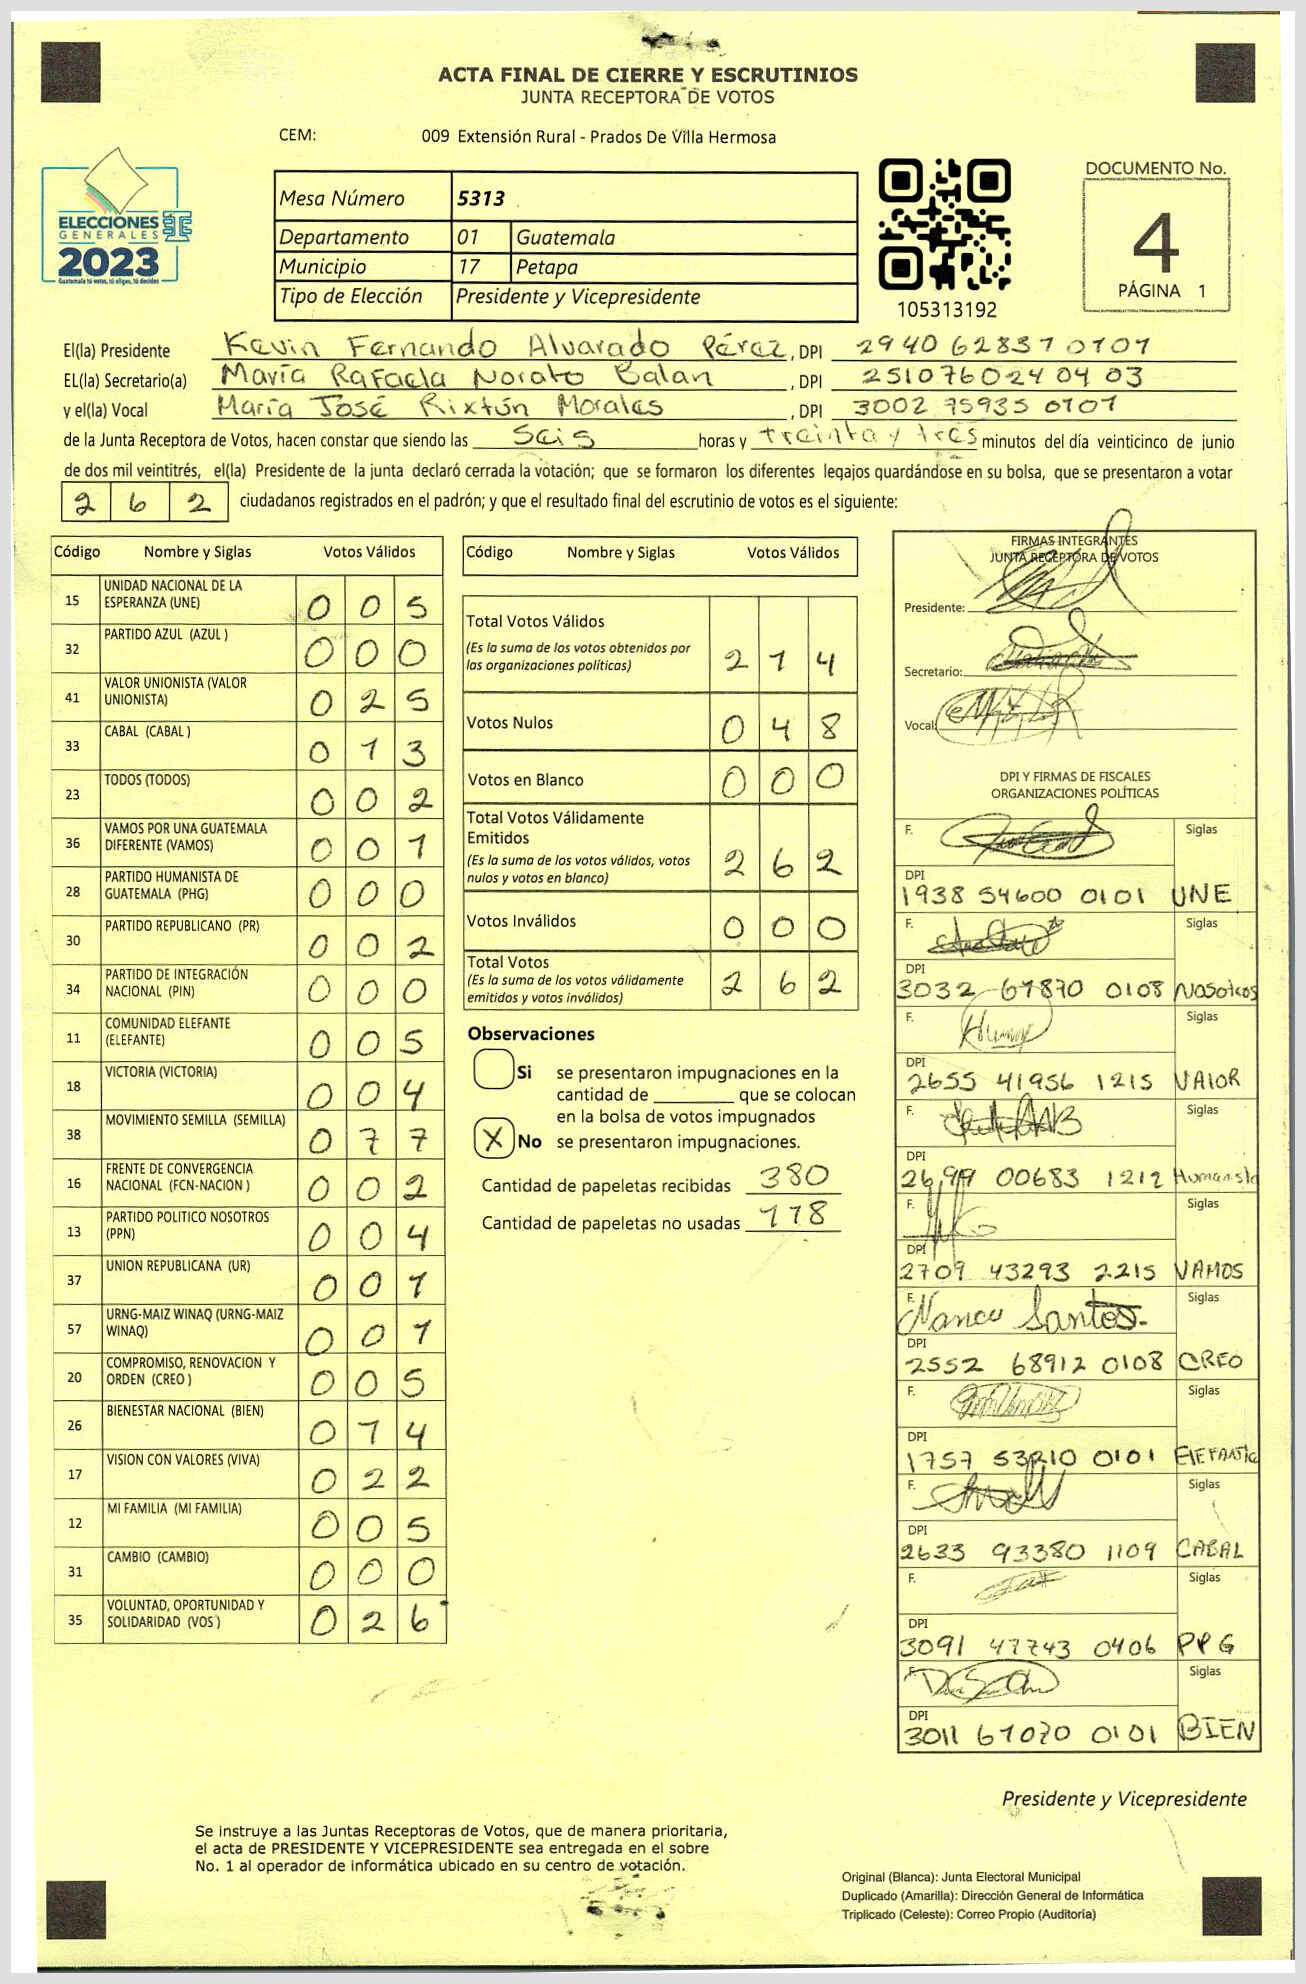 ACTA FINAL DE CIERRE Y ESCRUTINIOS
JUNTA RECEPTORA DE VOTOS
CEM: 009 Extensión Rural - Prados De Villa Hermosa
ELECCIONES
GENERALES
2023
Guatemala tú votas, tú eliges, tú decides
Mesa Número 5313
Departamento 01 Guatemala
Municipio 17 Petapa
Tipo de Elección Presidente y Vicepresidente
105313192
DOCUMENTO No.
4
PÁGINA 1
El(la) Presidente Kevin Fernando Alvarado Pérez, DPI 2940 62837 0101
EL(la) Secretario(a) María Rafaela Norato Balan , DPI 2510760240403
y el(la) Vocal María José Rixtún Morales , DPI 3002 75935 0101
de la Junta Receptora de Votos, hacen constar que siendo las seis horas y treinta y tres minutos del día veinticinco de junio
de dos mil veintitrés, el(la) Presidente de la junta declaró cerrada la votación; que se formaron los diferentes legajos guardándose en su bolsa, que se presentaron a votar
262 ciudadanos registrados en el padrón; y que el resultado final del escrutinio de votos es el siguiente:
Código Nombre y Siglas Votos Válidos
15 UNIDAD NACIONAL DE LA ESPERANZA (UNE) 005
32 PARTIDO AZUL (AZUL ) 000
41 VALOR UNIONISTA (VALOR UNIONISTA) 025
33 CABAL (CABAL ) 013
23 TODOS (TODOS) 002
36 VAMOS POR UNA GUATEMALA DIFERENTE (VAMOS) 001
28 PARTIDO HUMANISTA DE GUATEMALA (PHG) 000
30 PARTIDO REPUBLICANO (PR) 002
34 PARTIDO DE INTEGRACIÓN NACIONAL (PIN) 000
11 COMUNIDAD ELEFANTE (ELEFANTE) 005
18 VICTORIA (VICTORIA) 004
38 MOVIMIENTO SEMILLA (SEMILLA) 077
16 FRENTE DE CONVERGENCIA NACIONAL (FCN-NACION ) 002
13 PARTIDO POLITICO NOSOTROS (PPN) 004
37 UNION REPUBLICANA (UR) 001
57 URNG-MAIZ WINAQ (URNG-MAIZ WINAQ) 001
20 COMPROMISO, RENOVACION Y ORDEN (CREO ) 005
26 BIENESTAR NACIONAL (BIEN) 014
17 VISION CON VALORES (VIVA) 022
12 MI FAMILIA (MI FAMILIA) 005
31 CAMBIO (CAMBIO) 000
35 VOLUNTAD, OPORTUNIDAD Y SOLIDARIDAD (VOS ) 026
Código Nombre y Siglas Votos Válidos
Total Votos Válidos
(Es la suma de los votos obtenidos por
las organizaciones políticas) 214
Votos Nulos 048
Votos en Blanco 000
Total Votos Válidamente
Emitidos
(Es la suma de los votos válidos, votos
nulos y votos en blanco) 262
Votos Inválidos 000
Total Votos
(Es la suma de los votos válidamente
emitidos y votos inválidos) 262
Observaciones
Si se presentaron impugnaciones en la
cantidad de ________ que se colocan
en la bolsa de votos impugnados
X No se presentaron impugnaciones.
Cantidad de papeletas recibidas 380
Cantidad de papeletas no usadas 118
FIRMAS INTEGRANTES
JUNTA RECEPTORA DE VOTOS
Presidente:
Secretario:
Vocal:
DPI Y FIRMAS DE FISCALES
ORGANIZACIONES POLÍTICAS
F. Siglas
DPI
1938 54600 0101 UNE
F. Siglas
DPI
3032 67870 0108 Nosotros
F. Siglas
DPI
2655 41956 1215 VAlOR
F. Siglas
DPI
2699 00683 1212 Humanista
F. Siglas
DPI
2709 43293 2215 VAMOS
F. Siglas
Santos
DPI
2552 68912 0108 CREO
F. Siglas
DPI
1757 53210 0101 ElEFANTE
F. Siglas
DPI
2633 93380 1109 CABAL
F. Siglas
DPI
3091 47743 0406 PPG
F. Siglas
DPI
3011 67070 0101 BIEN
Presidente y Vicepresidente
Se instruye a las Juntas Receptoras de Votos, que de manera prioritaria,
el acta de PRESIDENTE Y VICEPRESIDENTE sea entregada en el sobre
No. 1 al operador de informática ubicado en su centro de votación.
Original (Blanca): Junta Electoral Municipal
Duplicado (Amarilla): Dirección General de Informática
Triplicado (Celeste): Correo Propio (Auditoría)